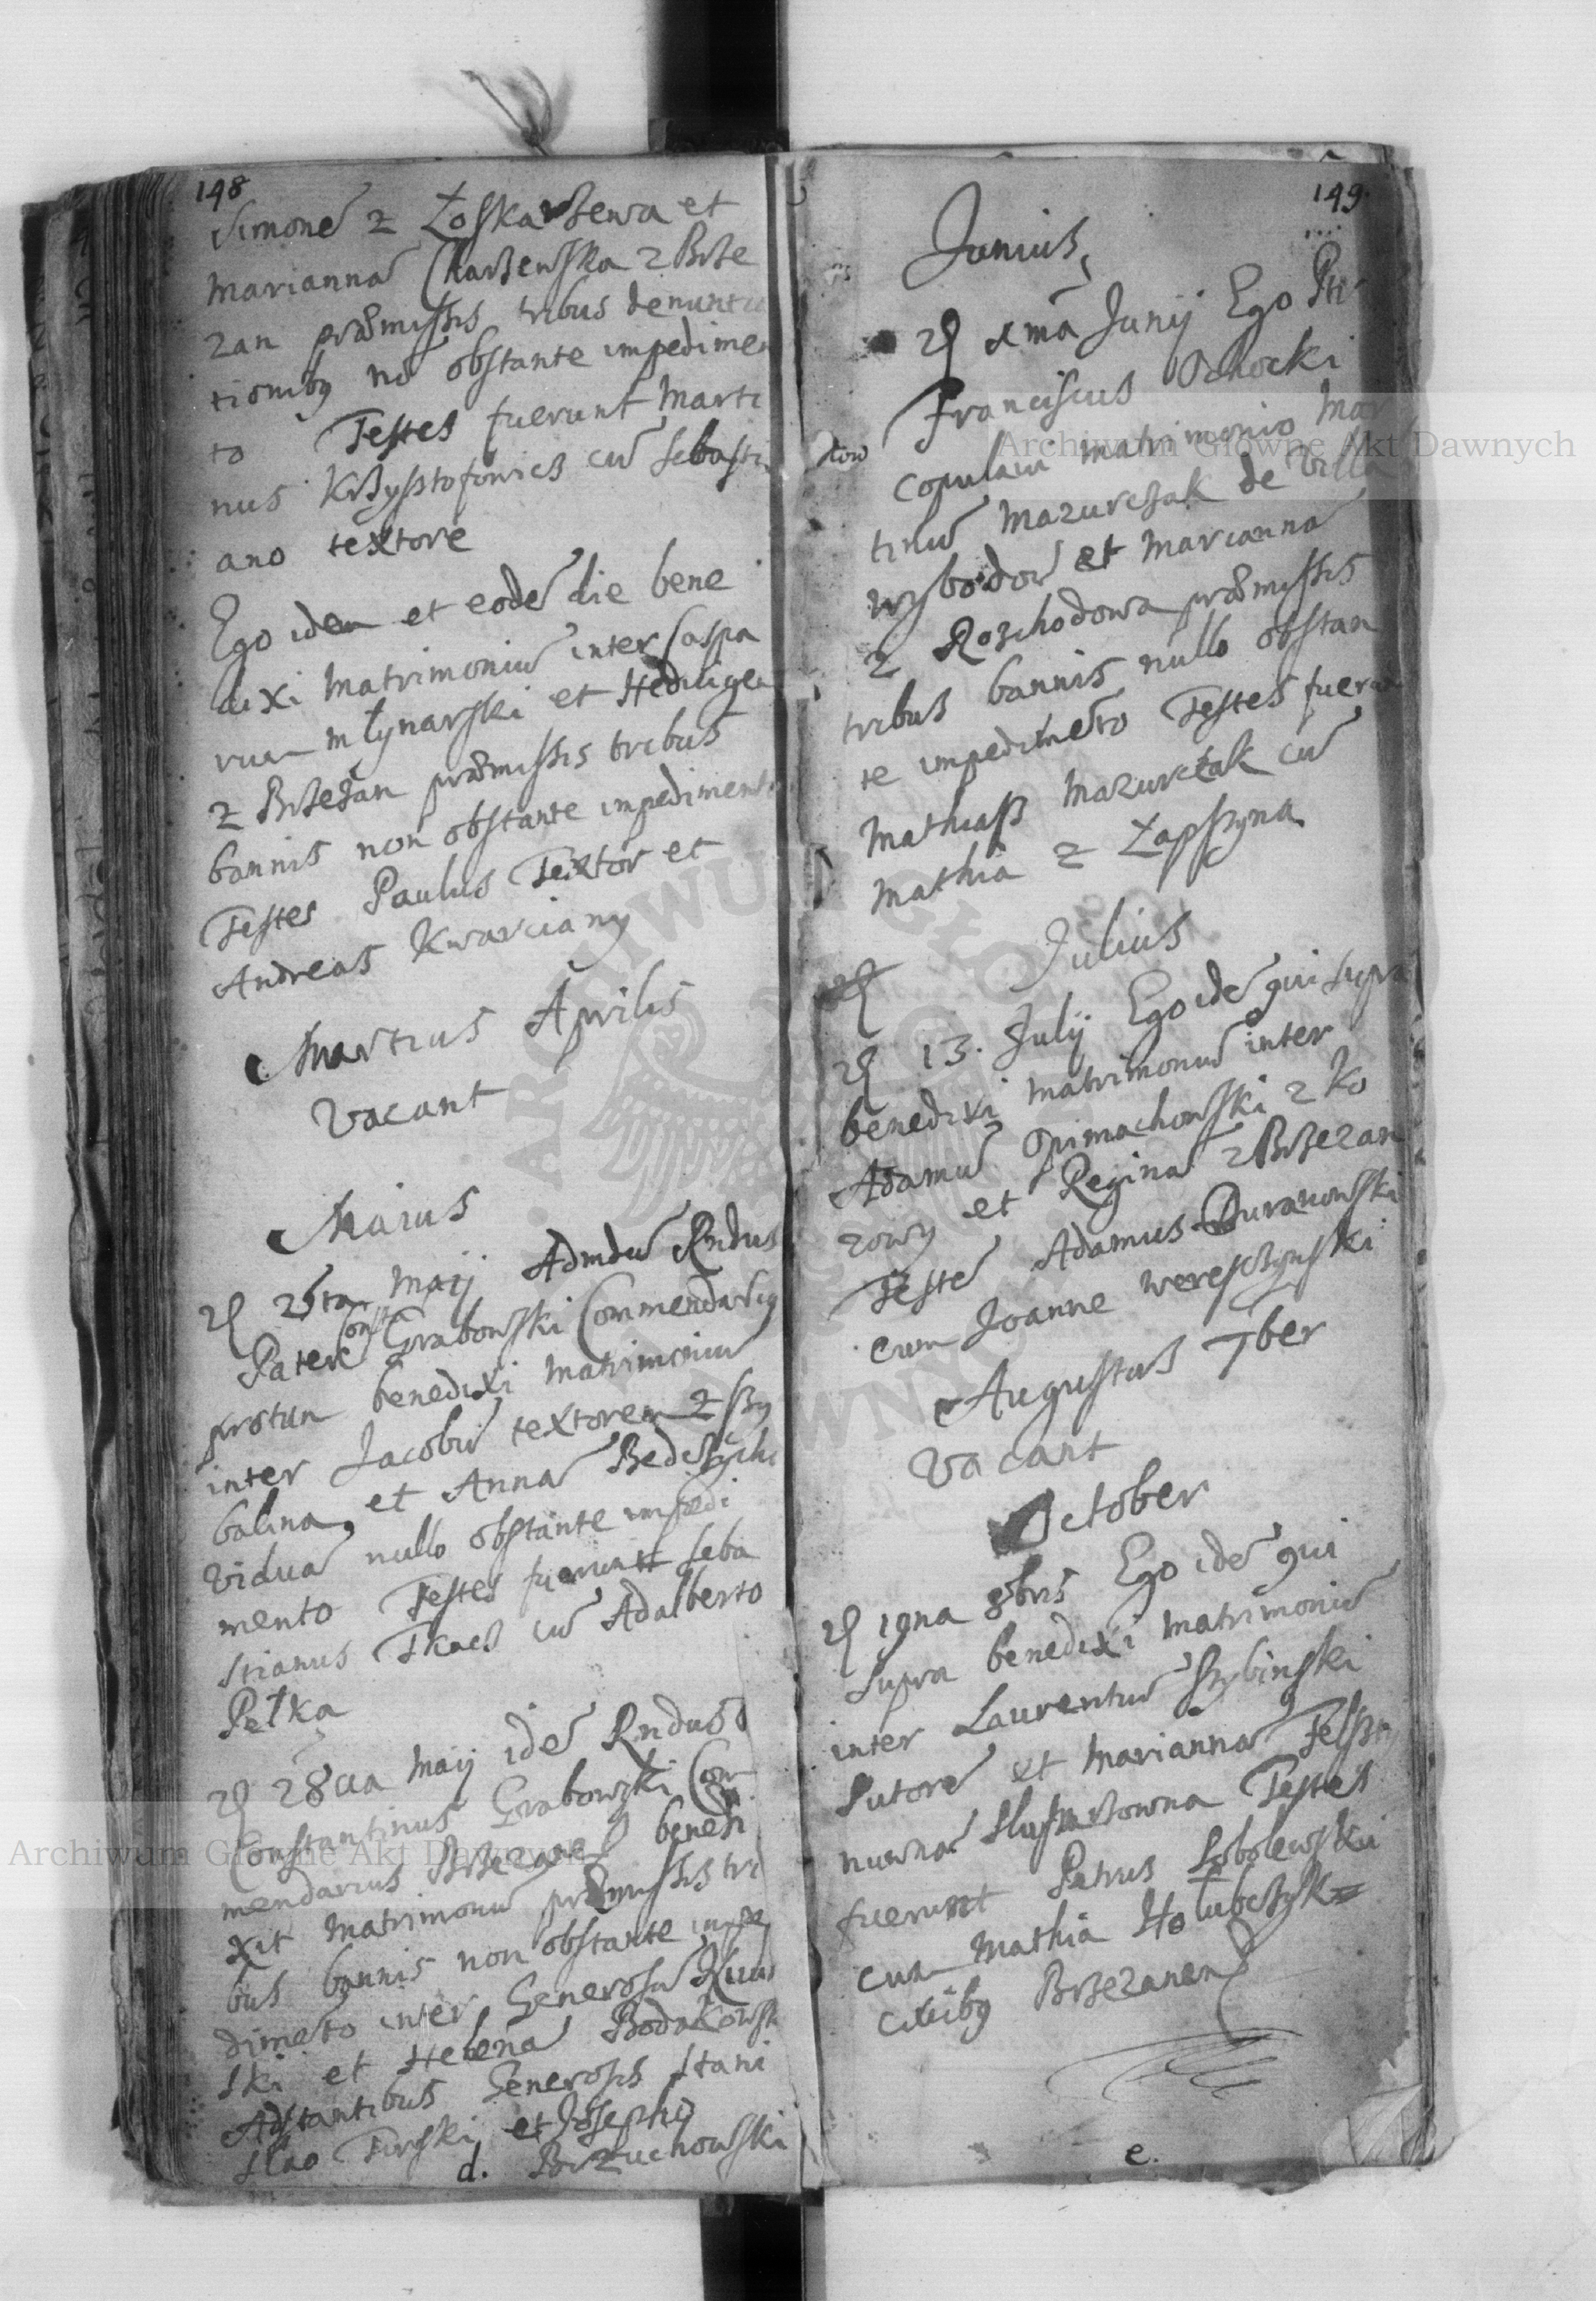 148
Simonē z Łoskarzewa et
Mariannā Charzewska z Brze
zan præmissis tribus denuntia
tionibq nō obstante impedimen
to Testes fuerunt Marti
nus Krzysztofowicz cū Sebasti
ano textore
Ego idem et eodē die bene
dixi Matrimoniū inter Caspa
rum młynarski et Hedvigem
z Brzeżan præmissis tribus
bannis non obstante impedimento
Testes Paulus Textor et
Andreas Kwarciany
Martius Aprilis
Vacant
Maius
25ta Maij Admdū Rndus
Pater Const Grabowski Commendariq
protun benedixi Matrimoniū
inter Jacobū textorem z Szy
balina et Annā
viduā nullo obstante impedi
mento Testes fuerunt Seba
stianus Tkacz cū Adalberto
Petka
28va Maij idē Rndus
Constantinus Grabowski Com
mendarius Brzezanen benedi
xit Matrimoniū præmissis tri
bus bannis non obstante impe
dimēto inter Generosū
ski et Helenā Bodakowsk
Adstantibus Generosis Stani
slao Turski et Josepho
d. Brzuchowski
149.
Junius
xma Junij Ego Ptr
Franciscus Ochocki
copulavi matrimonio Mar
tinū Mazurczak de Villa
wybodow et Mariannā
z Rozchodowa præmissis
tribus bannis nullo obstan
te impedimēto Testes fuerunt
Mathiasz Mazurczak cū
Mathia z Łapszyna
Julius
13. Julij Ego idē qui supra
benedixi matrimoniū inter
Adamū Opimachowski z Ko
zowy et Reginā z Brzezan
Teste Adamus Duranowski
cum Joanne Wereszczynski
Augustus 7ber
Vacant
October
19na 8bris Ego idē qui
supra benedixi matrimoniū
inter Laurentiū Szybinski
Sutorē et Mariannā Felszty
Testes
fuerunt Petrus Sobolewski
cum Mathia Hołubczyk
civibq Brzezanen
e.